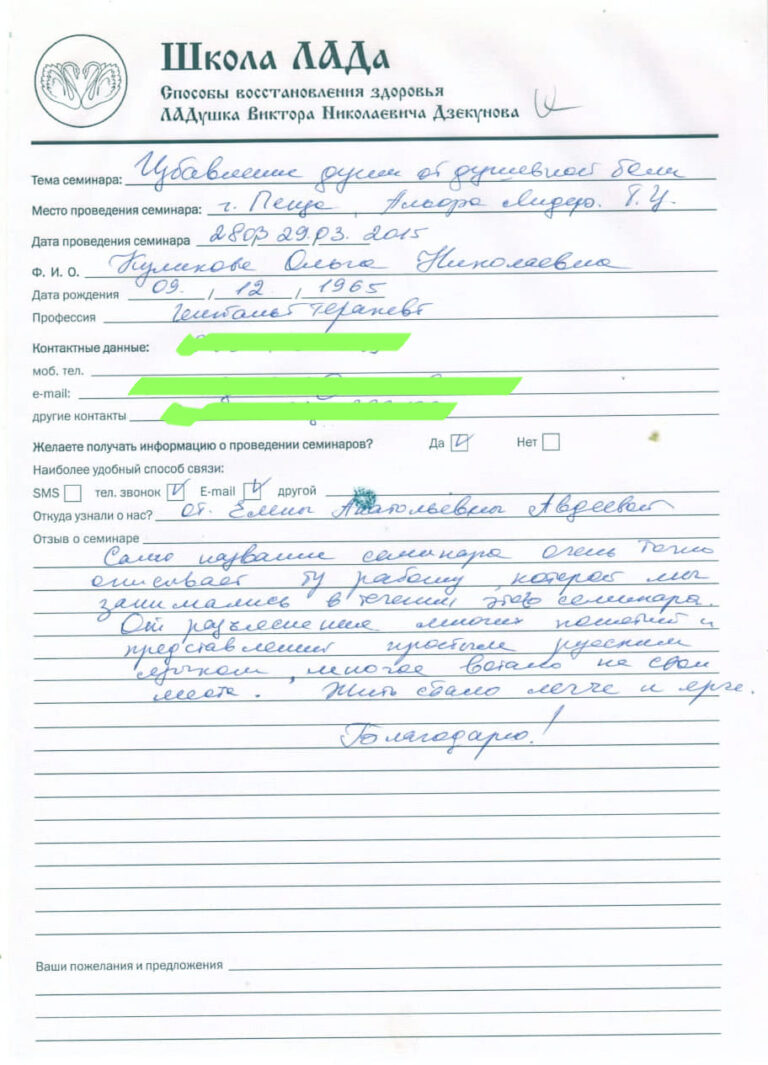 Школа ЛАДа
Способы восстановления здоровья
ЛАДушка Виктора Николаевича Дзекунова
Тема семинара: Избавление души от душевной боли
Место проведения семинара: г. Пенза, Лидер. Т.Ц.
Дата проведения семинара 28.03 29.03. 2015
Ф. И. О. Куликова Ольга Николаевна
Дата рождения 09. , 12. , 1965
Профессия гештальт терапевт
Контактные данные:
моб. тел.
e-mail:
другие контакты
Желаете получать информацию о проведении семинаров? Да Нет
Наиболее удобный способ связи:
SMS тел. звонок E-mail другой
Откуда узнали о нас? от Елены Анатольевны Авдеевой
Отзыв о семинаре
Само название семинара очень точно
описывает ту работу, которой мы
занимались в течении этого семинара.
От разъяснения многих понятий и
представлений простым русским
языком, многое встало на свои
места. Жить стало легче и ярче.
Благодарю!
Ваши пожелания и предложения